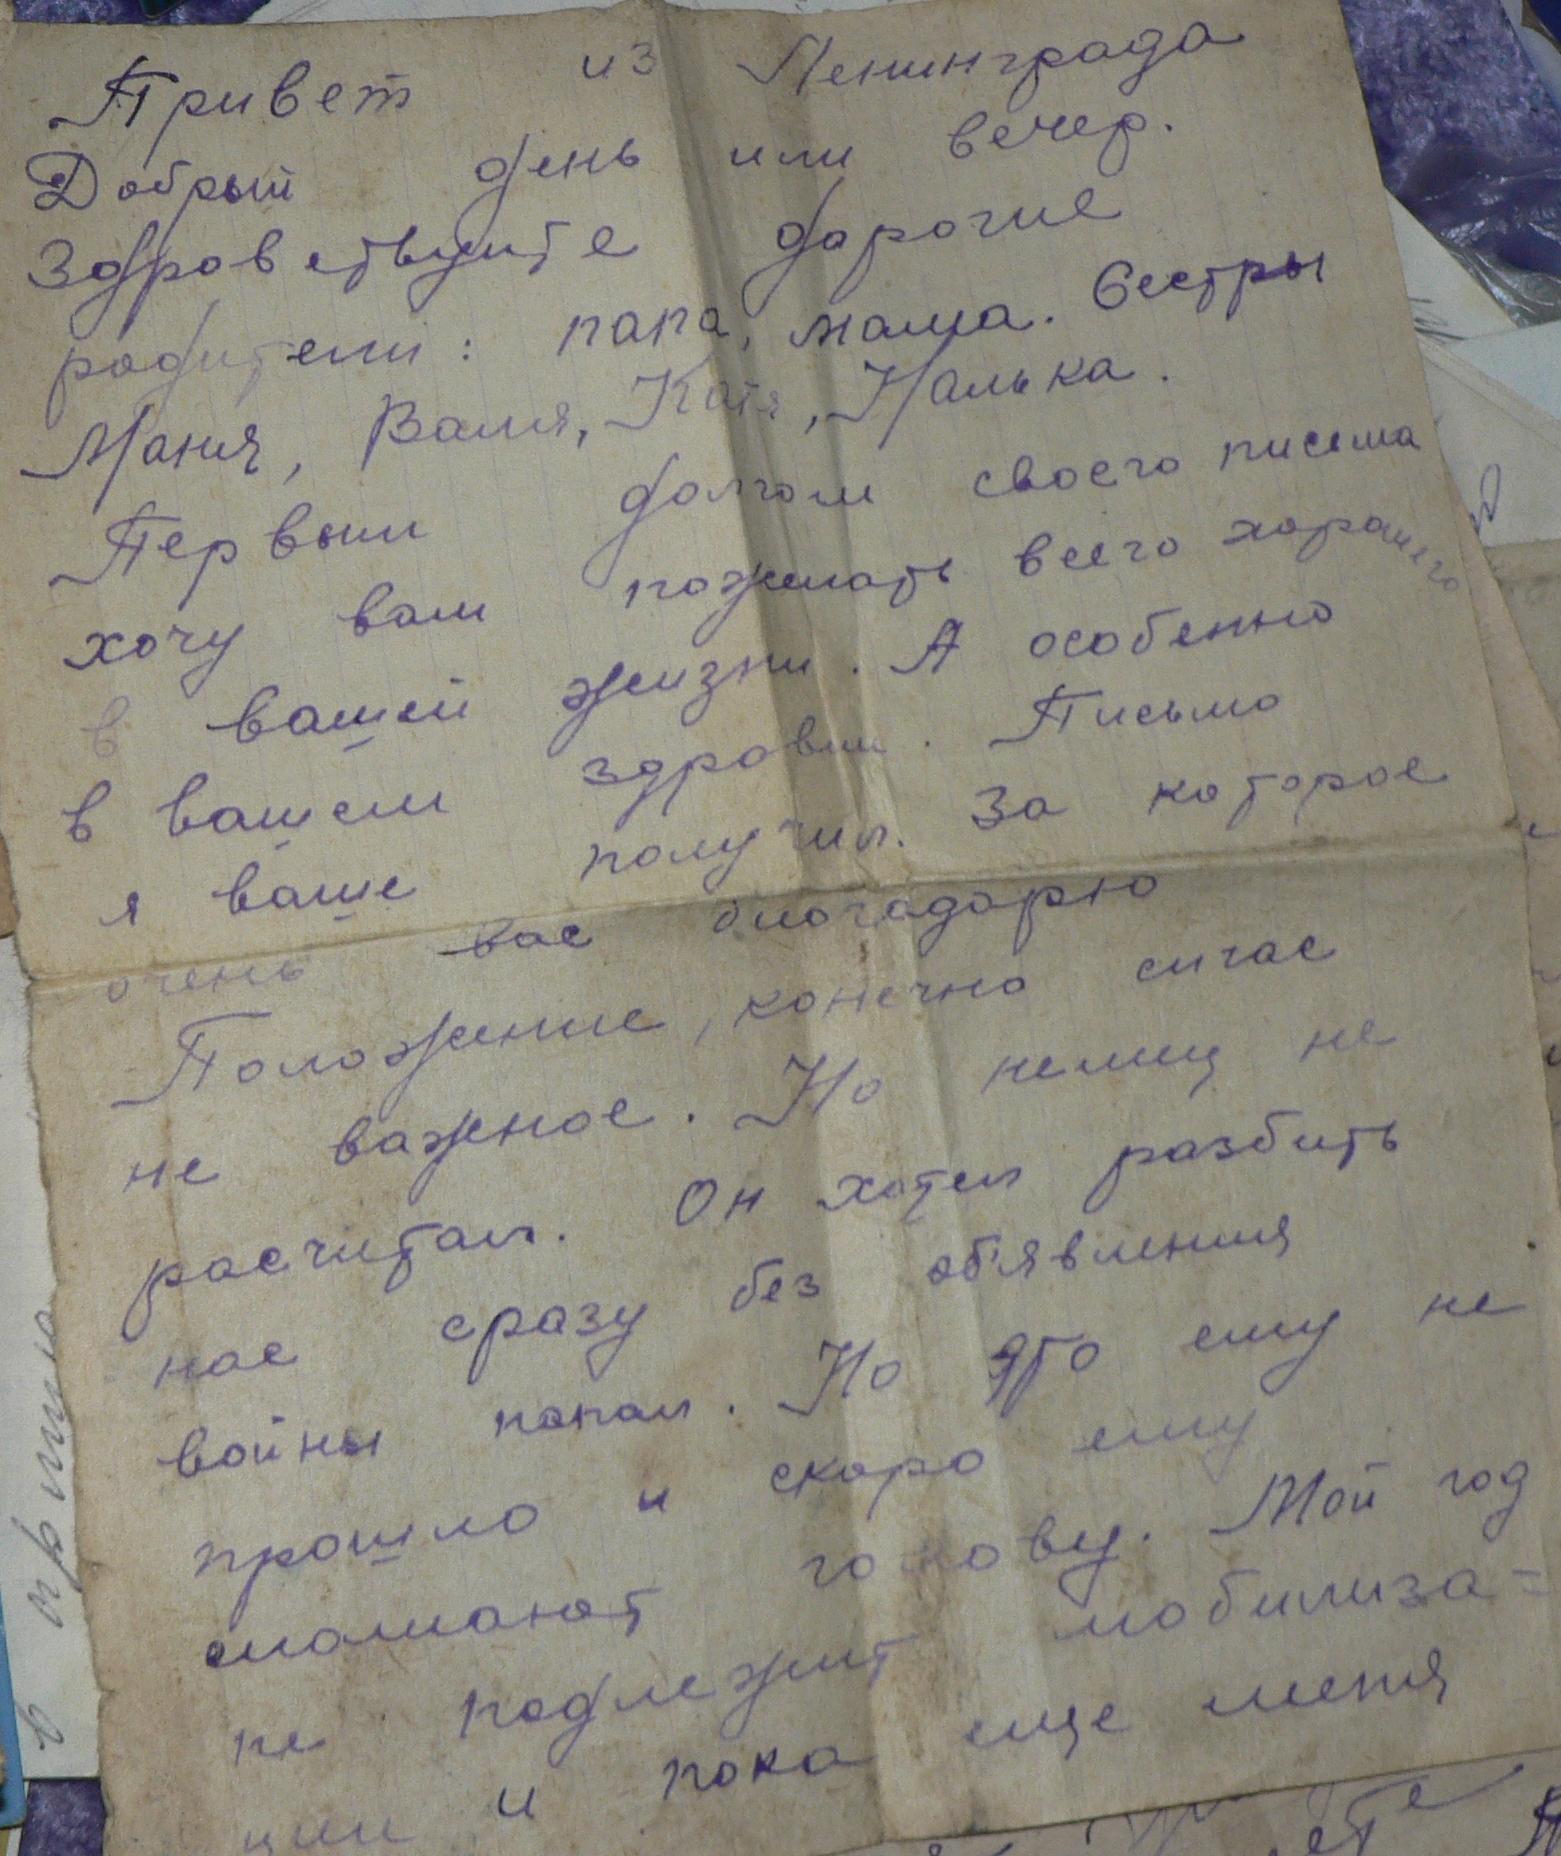 Привет из Ленинграда
Добрый день или вечер.
Здравствуйте дорогие
родители: папа, мама. Сестры
Маня, Валя, Катя, Налька.
Первым долгом своего письма
хочу вам пожелать всего хорошего
в вашей жизни. А особенно
в вашем здравии. Письмо
я ваше получил. За которое
очень вас благадарю
Положение, конечно сичас
не важное. Но немец не
расчитал. Он хотел разбить
нас сразу без об'явления
войны напал. Но это ему не
прошло и скоро ему
сломают голову. Мой год
не подлежит мобилиза=
ции и пока еще меня